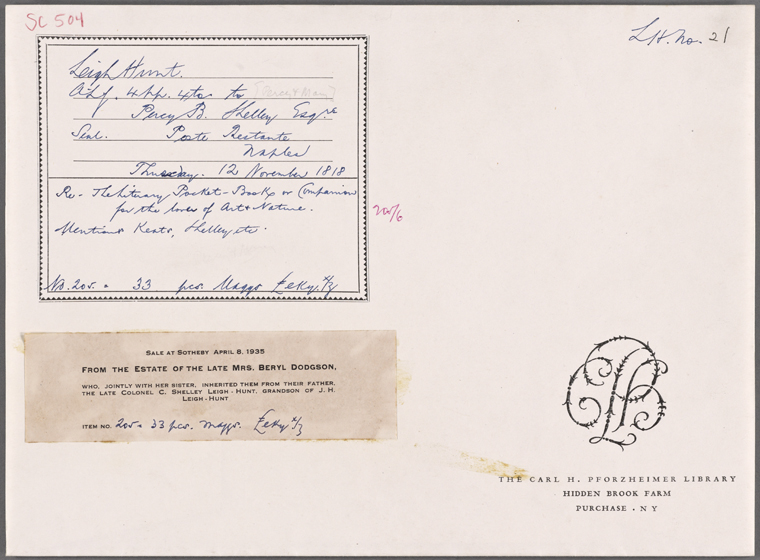 SC 504
L.H. no. 21
Leigh Hunt.
4 pp. 4to to [Percy & Mary]
Percy B. Shelley Esqre
Seal. Poste Restante
Naples
Thursday. 12 November 1818
Re- The Literary Pocket-Book or Companion
for the lover of Art & Nature.
Mentions Keats, Shelley etc.
No. 205. 33 pcs. Maggs
SALE AT SOTHEBY APRIL 8, 1935
FROM THE ESTATE OF THE LATE MRS. BERYL DODGSON,
WHO, JOINTLY WITH HER SISTER, INHERITED THEM FROM THEIR FATHER,
THE LATE COLONEL C. SHELLEY LEIGH-HUNT, GRANDSON OF J. H.
LEIGH-HUNT
ITEM NO. 205 33 pcs. Maggs.
THE CARL H. PFORZHEIMER LIBRARY
HIDDEN BROOK FARM
PURCHASE · NY